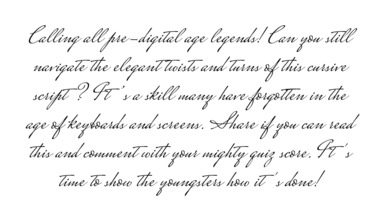 Calling all pre-digital age legends! Can you still
navigate the elegant twists and turns of this cursive
script? It's a skill many have forgotten in the
age of keyboards and screens. Share if you can read
this and comment with your mighty quiz score. It's
time to show the youngsters how it's done!